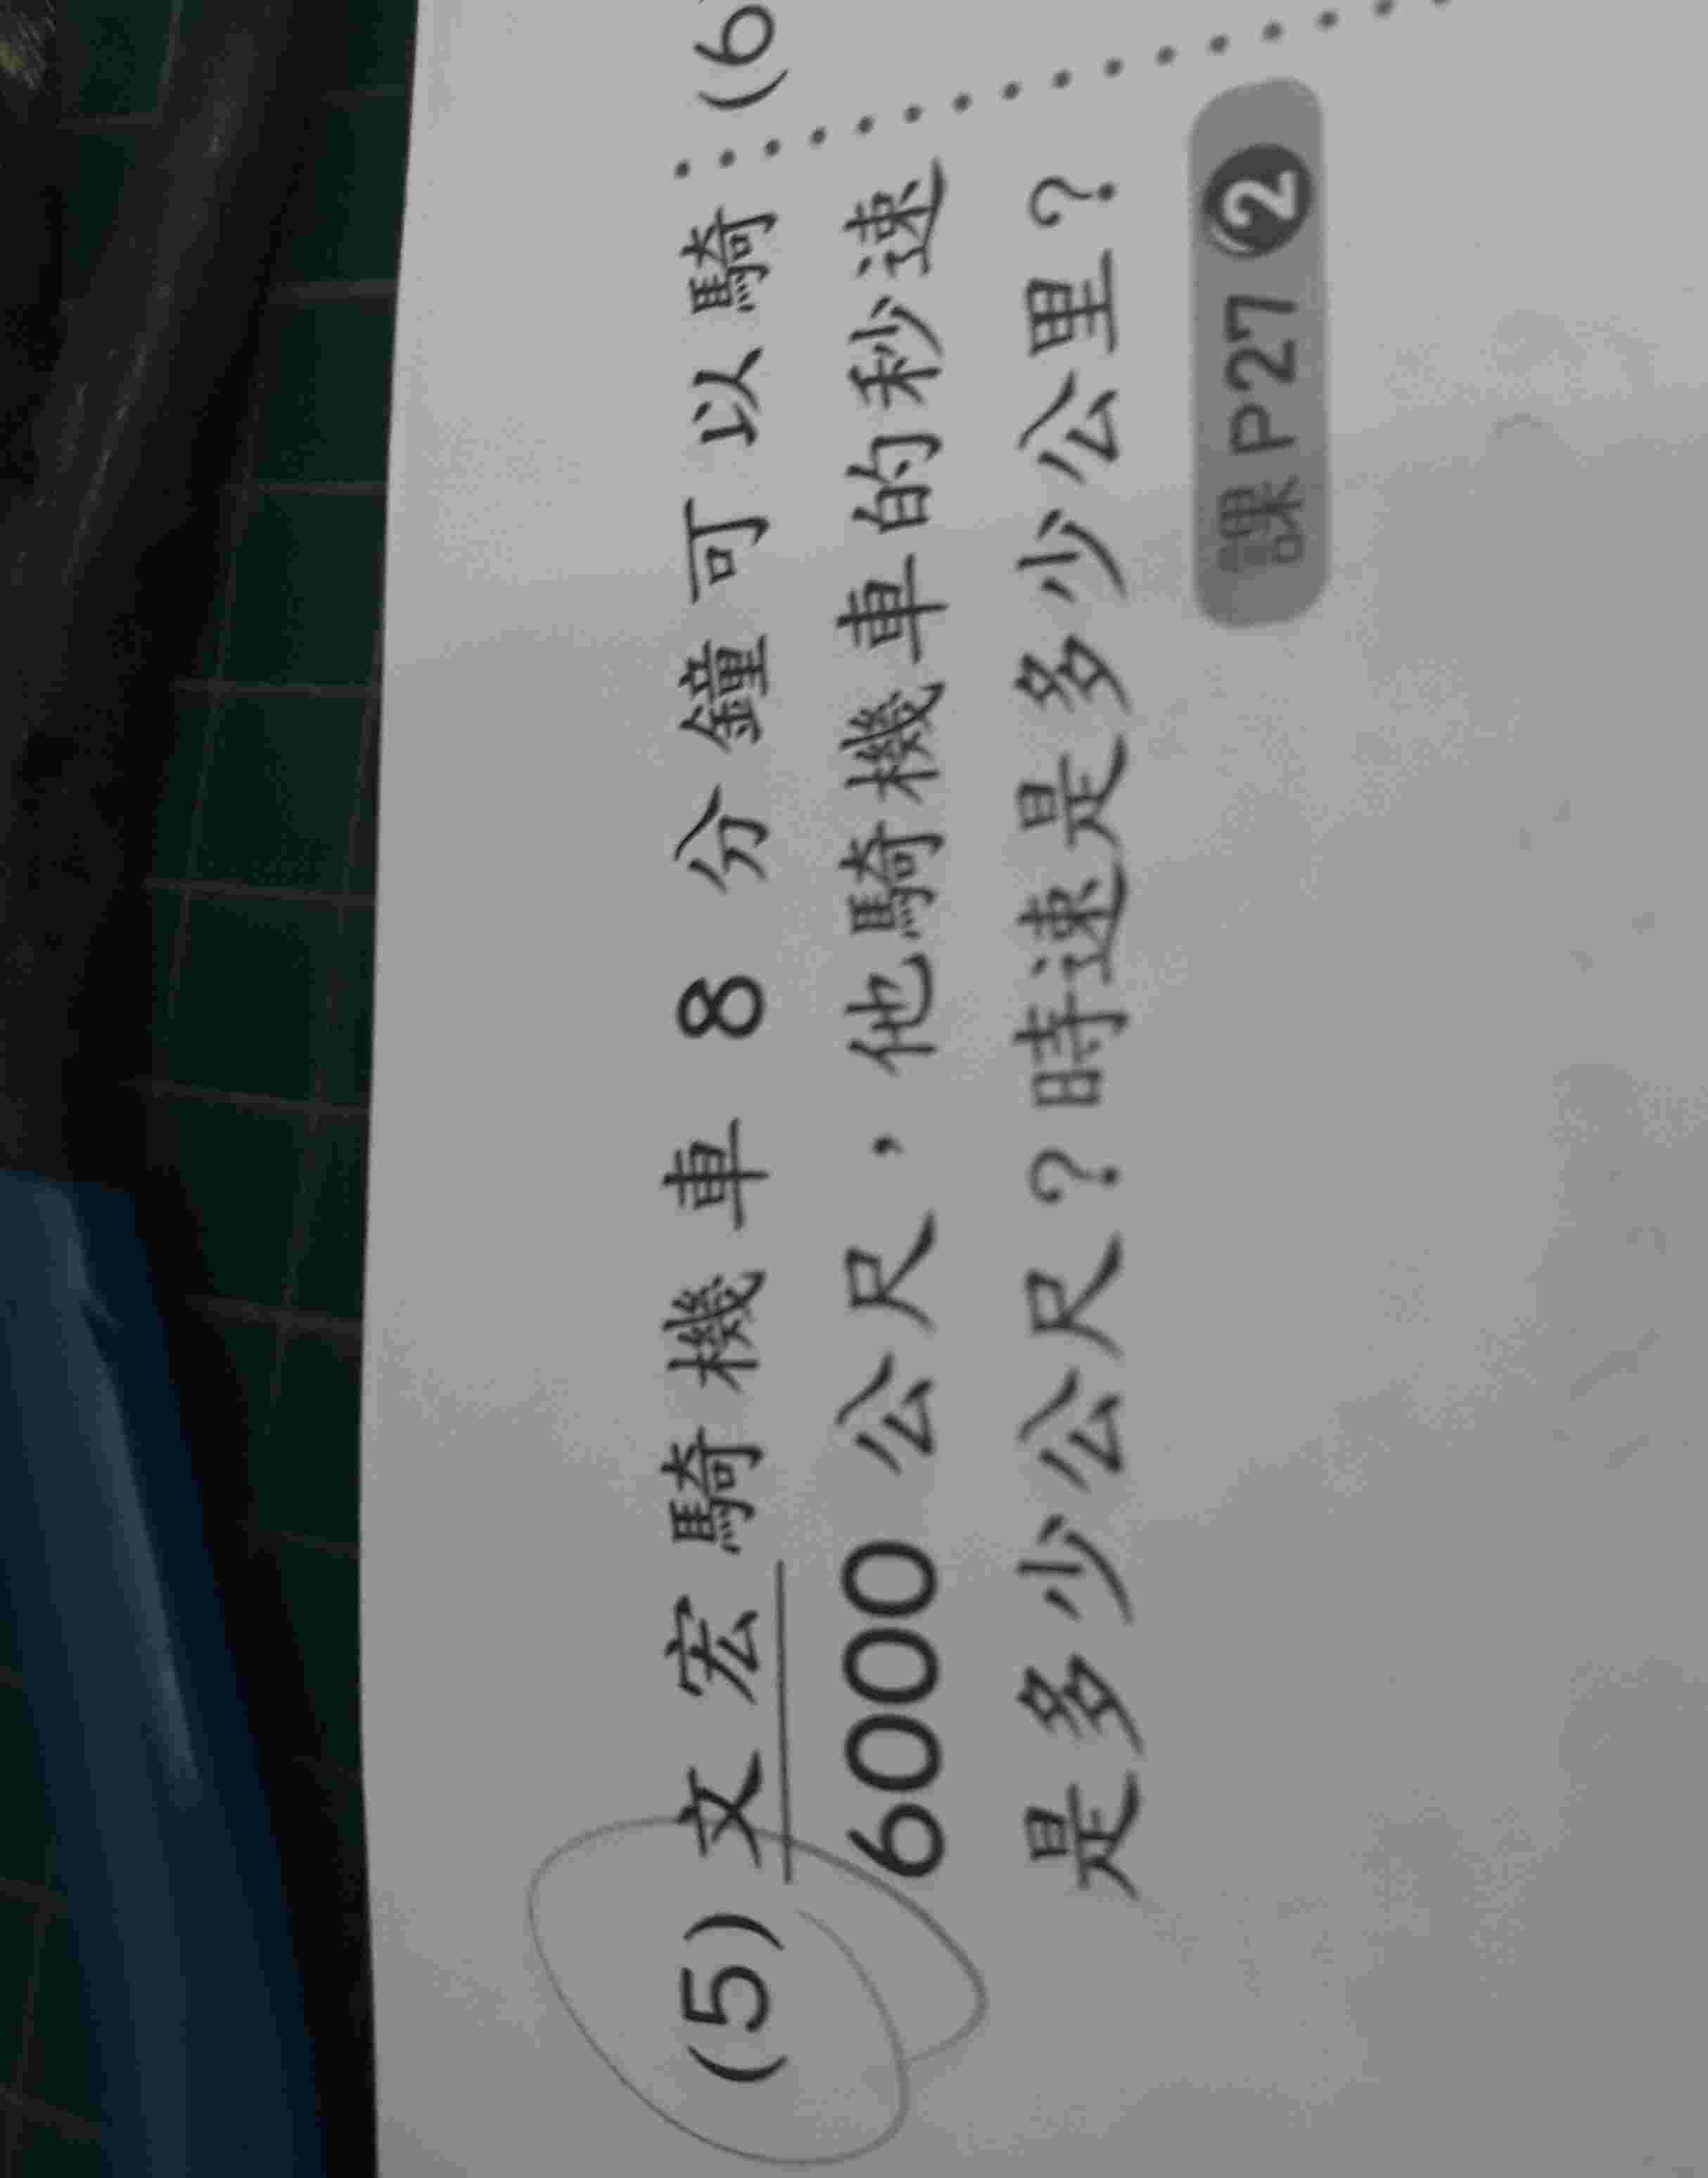 (5) 文宏騎機車 8 分鐘可以騎
6000 公尺，他騎機車的秒速
是多少公尺？時速是多少公里？
課P27 2
(6